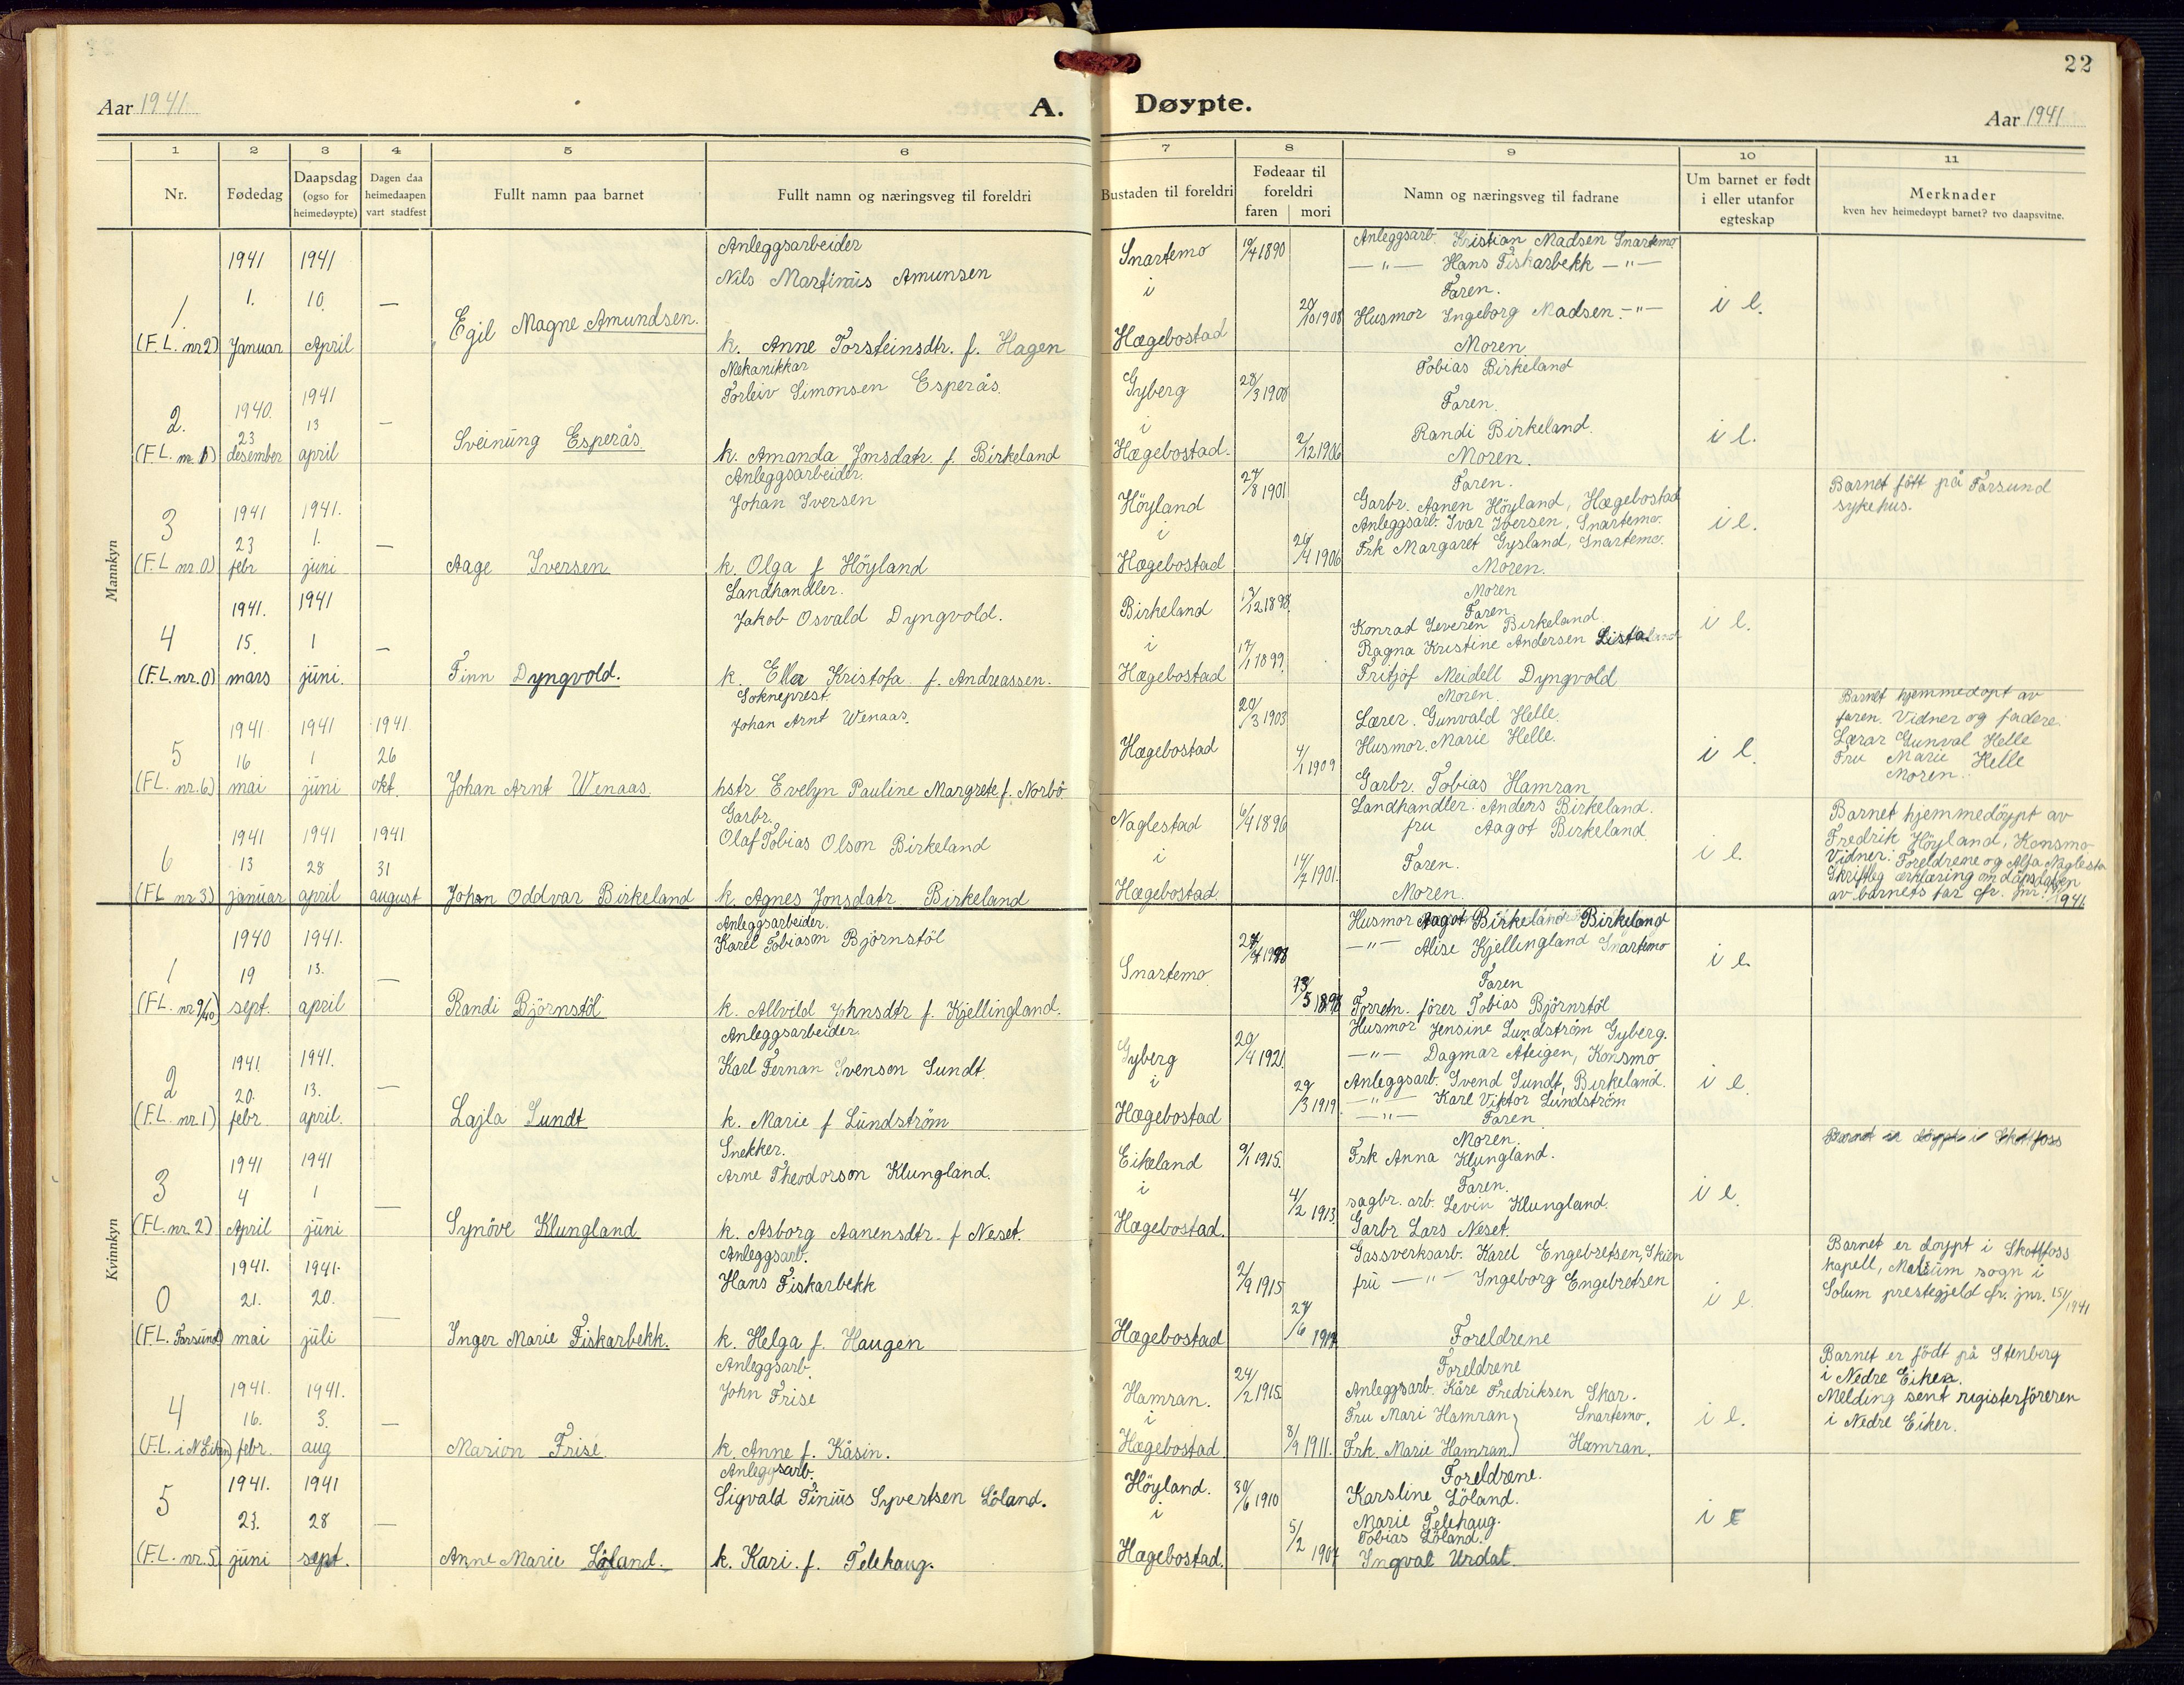 22
Aar 1941
A. Døypte.
Aar 1941
1 2 3 4 5 6 7 8 9 10 11
Nr.
Fødedag
Daapsdag
(ogso for
heimedøypte)
Dagen daa
heimedaapen
vart stadfest
Fullt namn paa barnet
Fullt namn og næringsveg til foreldri
Bustaden til foreldri
Fødeaar til
foreldri
faren mori
Namn og næringsveg til fadrane
Um barnet er født
i eller utanfor
egteskap
Merknader
kven hev heimedøypt barnet? tvo daapsvitne.
Mannkyn
1.
(F.L. nr 2)
1941
1.
Januar
1941
10.
April
—
Egil Magne Amundsen.
Anleggsarbeider
Nils Martinius Amunsen
k. Anne Torsteinsdtr. f. Hagen
Snartemo
i
Hægebostad
19/4 1890
20/10 1908
Anleggsarb. Kristian Madsen Snartemo
—"— Hans Fiskarbekk —"—
Faren.
Husmor Ingeborg Madsen. —"—
Moren
i e.
2.
(F.L. nr. 1)
1940.
23
desember
1941
13
april
—
Sveinung Esperås
Mekanikkar
Torleiv Simonsen Esperås.
k. Amanda Jonsdatr. f. Birkeland
Gyberg
i
Hægebostad.
28/3 1908
2/12 1906
Tobias Birkeland
Faren.
Randi Birkeland.
Moren.
i e.
3
(F.L nr. 0)
1941
23
febr
1941.
1.
juni
—
Aage Iversen
Anleggsarbeider.
Johan Iversen
k. Olga f Höyland
Höyland
i
Hægebostad
27/8 1901
26/4 1906
Faren.
Garbr. Aanen Höyland, Hægebostad
Anleggsarb. Ivar Iversen, Snartemo.
Frk Margaret Gysland, Snartemo.
Moren.
i e.
Barnet fött på Farsund
sykehus.
4
(F.L. nr. 0)
1941.
15.
mars
1941
1
juni.
—
Finn Dyngvold.
Landhandler.
Jakob Osvald Dyngvold.
k. Ella Kristofa f. Andreassen.
Birkeland
i
Hægebostad
12/12 1898
17/1 1899.
Moren
Faren.
Konrad Severen Birkeland.
Ragna Kristine Andersen Lista
Fritjof Meidell Dyngvold
i e.
5
(F.L. nr. 6.)
1941
16
mai
1941
1
juni
1941
26
okt.
Johan Arnt Wenaas.
Sokneprest
Johan Arnt Wenaas.
hstr. Evelyn Pauline Margrete f. Norbö
Hægebostad
20/3 1903
4/1 1909
Moren.
Lærer. Gunvald Helle.
Husmor. Marie Helle.
Garbr. Tobias Hamran
i e.
Barnet hjemmedöpt av
faren. Vidner og fadere.
Lærar Gunval Helle
Fru Marie Helle
Moren.
6
(F.L nr 3)
1941
13
januar
1941
28
april
1941
31
august
Johan Oddvar Birkeland
Garbr.
Olaf Tobias Olson Birkeland
k. Agnes Jonsdatr Birkeland
Naglestad
i
Hægebostad.
6/4 1896
14/7 1901.
Landhandler. Anders Birkeland.
fru Aagot Birkeland
Faren.
Moren.
i e.
Barnet hjemmedöypt av
Fredrik Höyland, Konsmo
Vidner: Foreldrene og Alfa Naglesta
Skriftleg erklæring om dåpsdagen
av barnets far cfr. jnr. 1941
Kvinnkyn
1
(F.L. nr 9/40)
1940
19
sept.
1941.
13.
april
—
Randi Björnstöl
Anleggsarbeider.
Karel Tobiason Björnstöl
k. Allvild Johnsdtr f. Kjellingland.
Snartemo
13/5 1898
Husmor Aagot Birkeland Birkeland
—"— Alise Kjellingland Snartemo
Faren
Forretn. förer Tobias Björnstöl
i e
2
(F.L. nr. 1)
1941.
20.
febr
1941.
13.
april.
—
Lajla Sundt
Anleggsarbeider.
Karl Fernan Svenson Sundt.
k. Marie f Lundström
Gyberg
i
Hægebostad
20/4 1921.
29/3 1919.
Husmor Jensine Lundström Gyberg.
—"— Dagmar Ateigen, Konsmo
Anleggsarb. Svend Sundt, Birkeland.
—"— Karl Viktor Lundström
—"— Faren
i e.
3
(F.L. nr. 2)
1941
4
April
1941
1
juni
—
Synöve Klungland
Snekker.
Arne Theodorson Klungland.
k. Asborg Aanensdtr. f Neset.
Eikeland
i
Hægebostad.
9/1 1915.
4/2 1913.
Moren.
Frk Anna Klungland.
Faren.
sagbr. arb. Levin Klungland.
Garbr Lars Neset.
i e.
Barnet er döypt i Skotfoss
0
(F.L. Farsund)
1941.
21.
mai
1941.
20.
juli
—
Inger Marie Fiskarbekk.
Anleggsarb.
Hans Fiskarbekk
k. Helga f. Haugen
Hægebostad
2/9 1915
27/6 1917
Gassverksarb. Karel Engebretsen, Skien
fru —"— Ingeborg Engebretsen
Foreldrene
i e.
Barnet er döypt i Skotfoss
kapell, Melum sogn i
Solum prestegjeld cfr. jnr. 151/1941
4
(F.L. i N Eiker)
1941.
16.
febr.
1941.
3.
aug
—
Marion Frise
Anleggsarb.
John Frise
k. Anne f. Kåsin.
Hamran.
i
Hægebostad
24/2 1915.
8/9 1911.
Foreldrene
Anleggsarb. Kåre Fredriksen Skar.
Fru Mari Hamran Snartemo.
Frk. Marie Hamran Hamran.
i e.
Barnet er födt på Stenberg
i Nedre Eiker.
Melding sent registerföreren
i Nedre Eiker.
5
(F.L. nr. 5)
1941.
23.
juni
1941
28
sept.
—
Anne Marie Löland.
Anleggsarb.
Sigvald Tinius Syvertsen Löland.
k. Kari. f. Telehaug.
Höyland.
i
Hægebostad.
30/6 1910
5/2 1907
Foreldrene.
Karsline Löland.
Marie Telehaug.
Tobias Löland.
Ingval Urdal.
i e